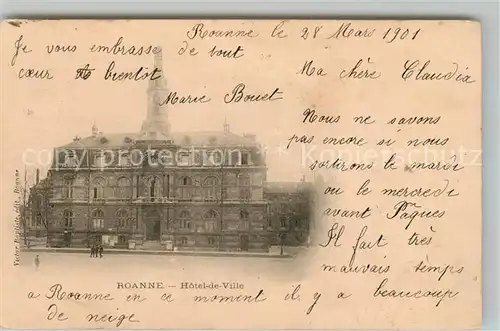 Roanne le 28 Mars 1901
Ma chère Claudia
Nous ne savons
pas encore si nous
sortirons le mardi
ou le mercredi
avant Pâques
Il fait très
mauvais temps
a Roanne en ce moment il y a beaucoup
de neige
Je vous embrasse de tout
cœur et bientôt
Marie Bouet
ROANNE — Hôtel-de-Ville
Victor Baptiste, édit. Roanne